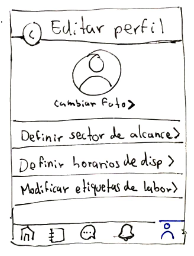 Editar perfil
Cambiar foto>
Definir sector de alcance>
Definir horarios de disp >
Modificar etiquetas de labor>